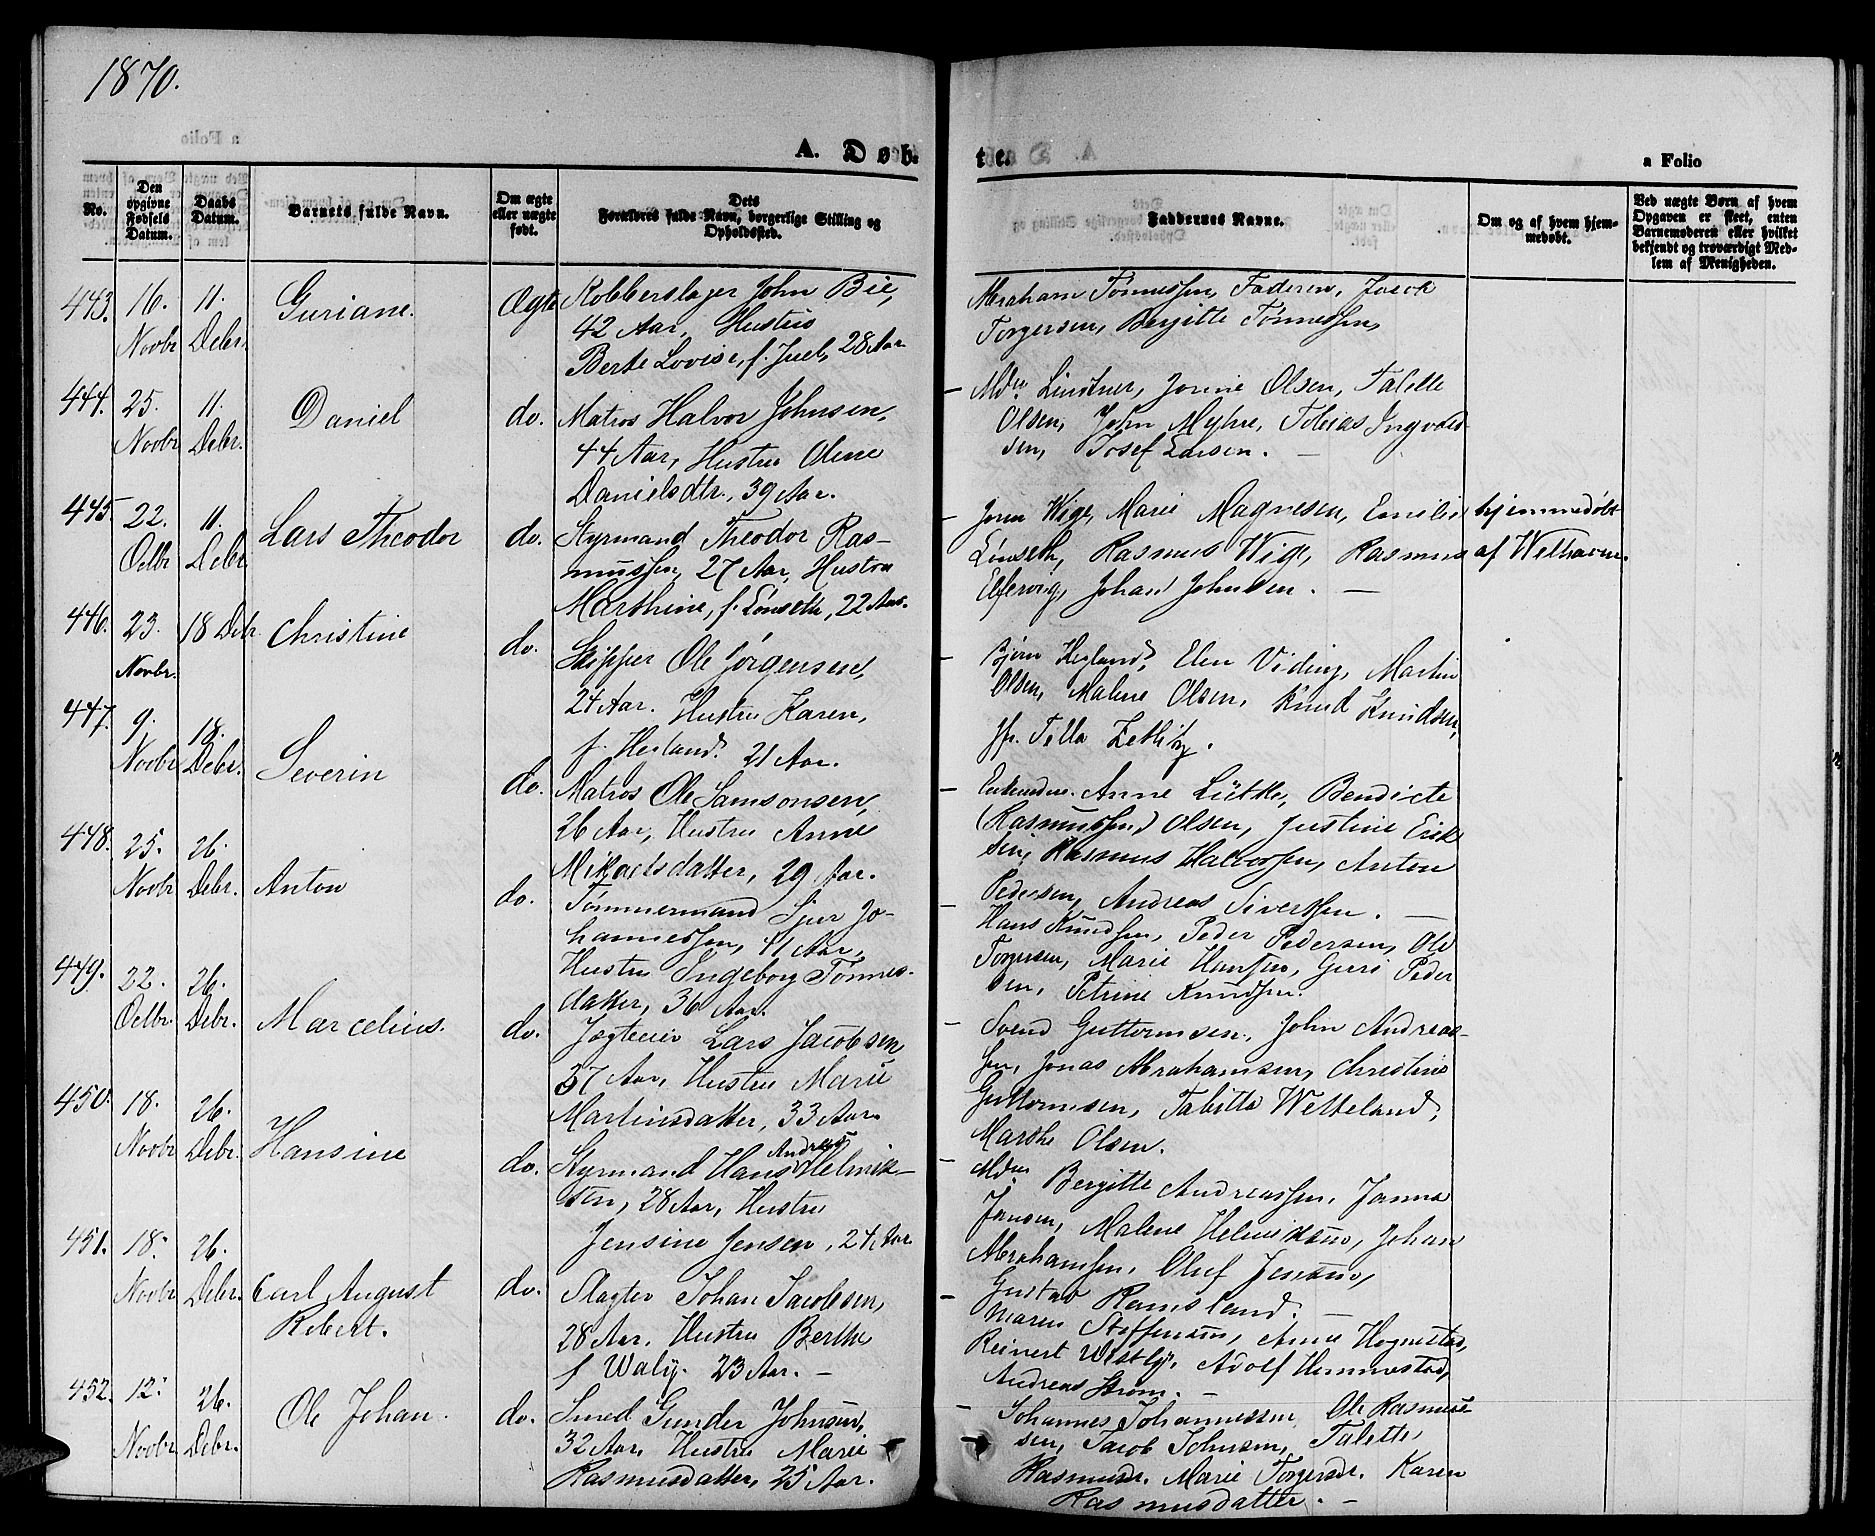 1870.
A. Døb-
te.
a Folio
No.
Den opgivne Fødsels Datum.
Daabs Datum.
Barnets fulde Navn.
Om ægte eller uægte født.
Dets Forældres fulde Navn, borgerlige Stilling og Opholdssted.
Faddernes Navne.
Om og af hvem hjemmedøbt.
Ved uægte Børn af hvem Opgaven er skeet, enten Barnemoderen eller hvilket bekjendt og troværdigt Medlem af Menigheden.
443. 16. Novbr 11. Debr. Guriane. Ægte
Kobberslager John Bie,
42 Aar, Hustru
Berte Lovise, f. Juel, 28 Aar
Abraham Tønnessen, Faderen, Jacob
Torgersen, Bergitte Tønnessen,
444. 25. Novbr 11. Debr. Daniel do.
Matros Halvor Johnsen,
44 Aar, Hustru Olene
Danielsdtr., 39 Aar.
Mdm. Lindtner, Jonne Olsen, Talette
Olsen, John Myhre, Tobias Ingvald
sen, Josef Larsen. —
445. 22. Octbr 11. Debr Lars Theodor do.
Styrmand Theodor Ras-
mussen, 27 Aar, Hustru
Marthine, f. Lønseth, 22 Aar.
Jorun Wige, Marie Magnesen, Emilie
Lønseth, Rasmus Wige, Rasmus
Elfervig, Johan Johnsen. —
hjemmedøbt
af Welhaven.
446. 23. Novbr. 18 Debr Christine do.
Skipper Ole Jørgensen,
24 Aar. Hustru Karen,
f. Hegland. 21 Aar.
Bjørn Hegland, Elen Viding, Martin
Olsen, Malene Olsen, Knud Knudsen,
Jfr. Tilla Zetlitz.
447. 9. Novbr 18. Debr. Severin do.
Matros Ole Samsonsen,
26 Aar, Hustru Anne
Mikaelsdatter, 29 Aar.
Enkemdm. Anne Lütke, Bendicte
(Rasmussen) Olsen, Justine Erik
sen, Rasmus Halvorsen, Anton
Pedersen, Andreas Sivertsen. —
448. 25. Novbr 26. Debr. Anton do.
Tømmermand Sjur Jo-
hannessen, 41 Aar,
Hustru Ingeborg Tønnes-
datter, 36 Aar.
Hans Knudsen, Peder Pedersen, Ole
Torgersen, Marie Hansen, Guri Peder
sen, Petrine Knudsen.
449. 22. Octbr 26. Debr. Marcelius. do.
Jægteeier Lars Jacobsen
37 Aar, Hustru Marie
Martinsdatter, 33 Aar.
Svend Guttormsen, John Andreas-
sen, Jonas Abrahamsen, Christine
Guttormsen, Tabitta Wetteland,
Marthe Olsen.
450. 18. Novbr 26. Debr. Hansine do.
Styrmand Hans Andreas Helmik-
sen, 28 Aar, Hustru
Jensine Jensen, 24 Aar
Mdm Bergitte Andreassen, Janna
Jansen, Malene Helmiksen, Johan
Abrahamsen, Oluf Jensen,
Gustav Ramsland. —
451. 18. Novbr 26. Debr. Carl August do.
Robert.
Slagter Johan Jacobsen,
28 Aar. Hustru Berthe
f. Waly. 23 Aar. —
Maren Steffensen, Anna Hognestad,
Reinert Westly, Adolf Hemmestad,
Andreas Strøm. —
452. 12. Novbr 26. Debr. Ole Johan. do.
Smed Gunder Johnsen,
32 Aar, Hustru Marie
Rasmusdatter, 25 Aar.
Johannes Johannessen, Ole Rasmus
sen, Jacob Johnsen, Talette
Rasmusdr. Marie Torgersdr. Karen
Rasmusdatter. —